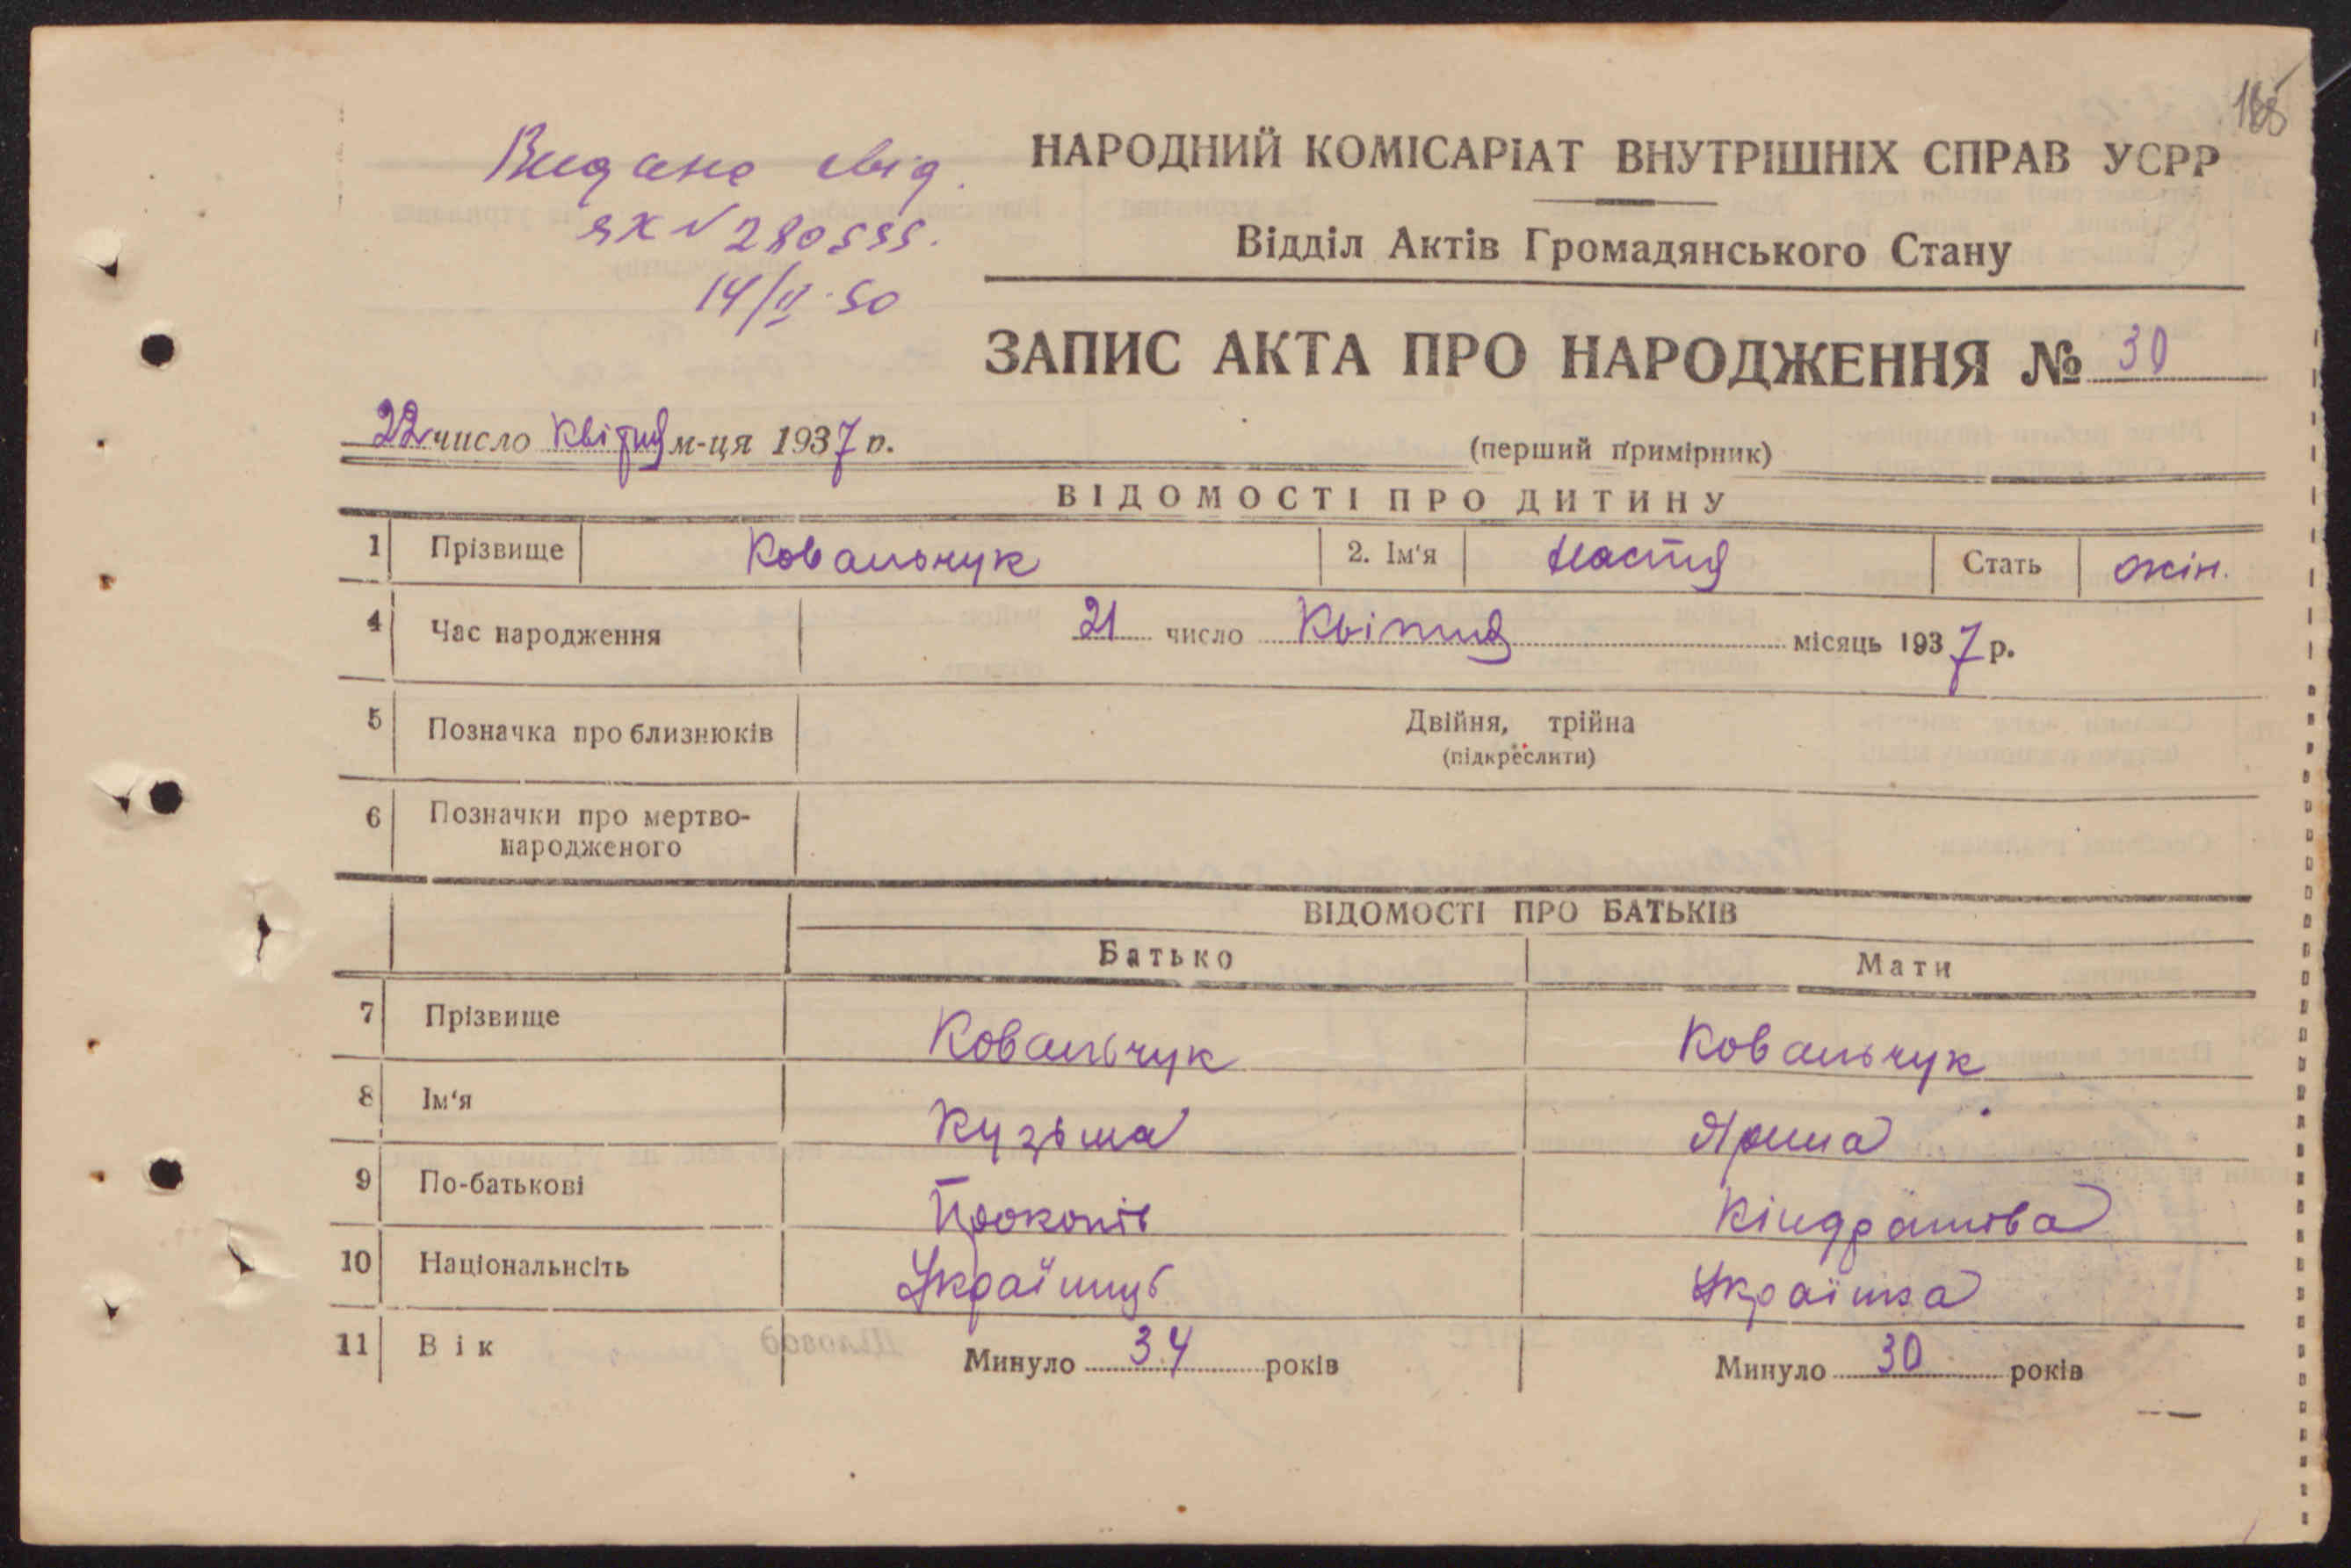 188
Видане свід.
ЯХ № 280555.
14/II-50
НАРОДНИЙ КОМІСАРІАТ ВНУТРІШНІХ СПРАВ УСРР
Відділ Актів Громадянського Стану
ЗАПИС АКТА ПРО НАРОДЖЕННЯ № 30
22 число Квітня м-ця 1937 р.
(перший примірник)
ВІДОМОСТІ ПРО ДИТИНУ
1 Прізвище Ковальчук 2. Ім'я Настя Стать жін.
4 Час народження 21 число Квітня місяць 1937 р.
5 Позначка про близнюків Двійня, трійна
(підкреслити)
6 Позначки про мертво-
народженого
ВІДОМОСТІ ПРО БАТЬКІВ
Батько Мати
7 Прізвище Ковальчук Ковальчук
8 Ім'я Кузьма Ярина
9 По-батькові Прокопів Кіндратова
10 Національнсіть Українць Українка
11 Вік Минуло 34 років Минуло 30 років